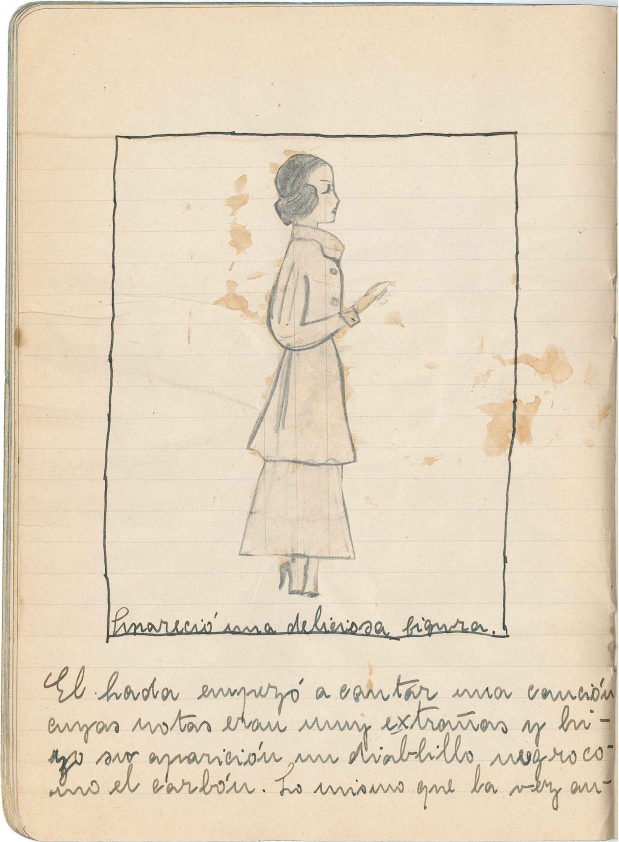 Apareció una deliciosa figura.
El hada empezó a cantar una canción
cuyas notas eran muy extrañas y hi-
zo su aparición un diablillo negro co-
mo el carbón. Lo mismo que la vez an-